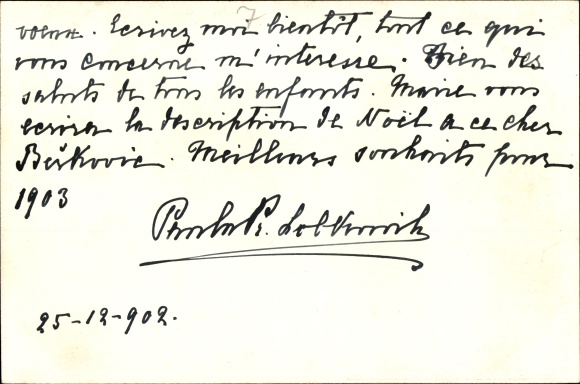 voeux. Ecrivez moi bientôt, tout ce qui
vous concerne m'interesse. Bien des
saluts de tous les enfants. Marie vous
ecrira la description de Noël a ce cher
Berkovic. Meilleurs souhaits pour
1903
25-12-902.